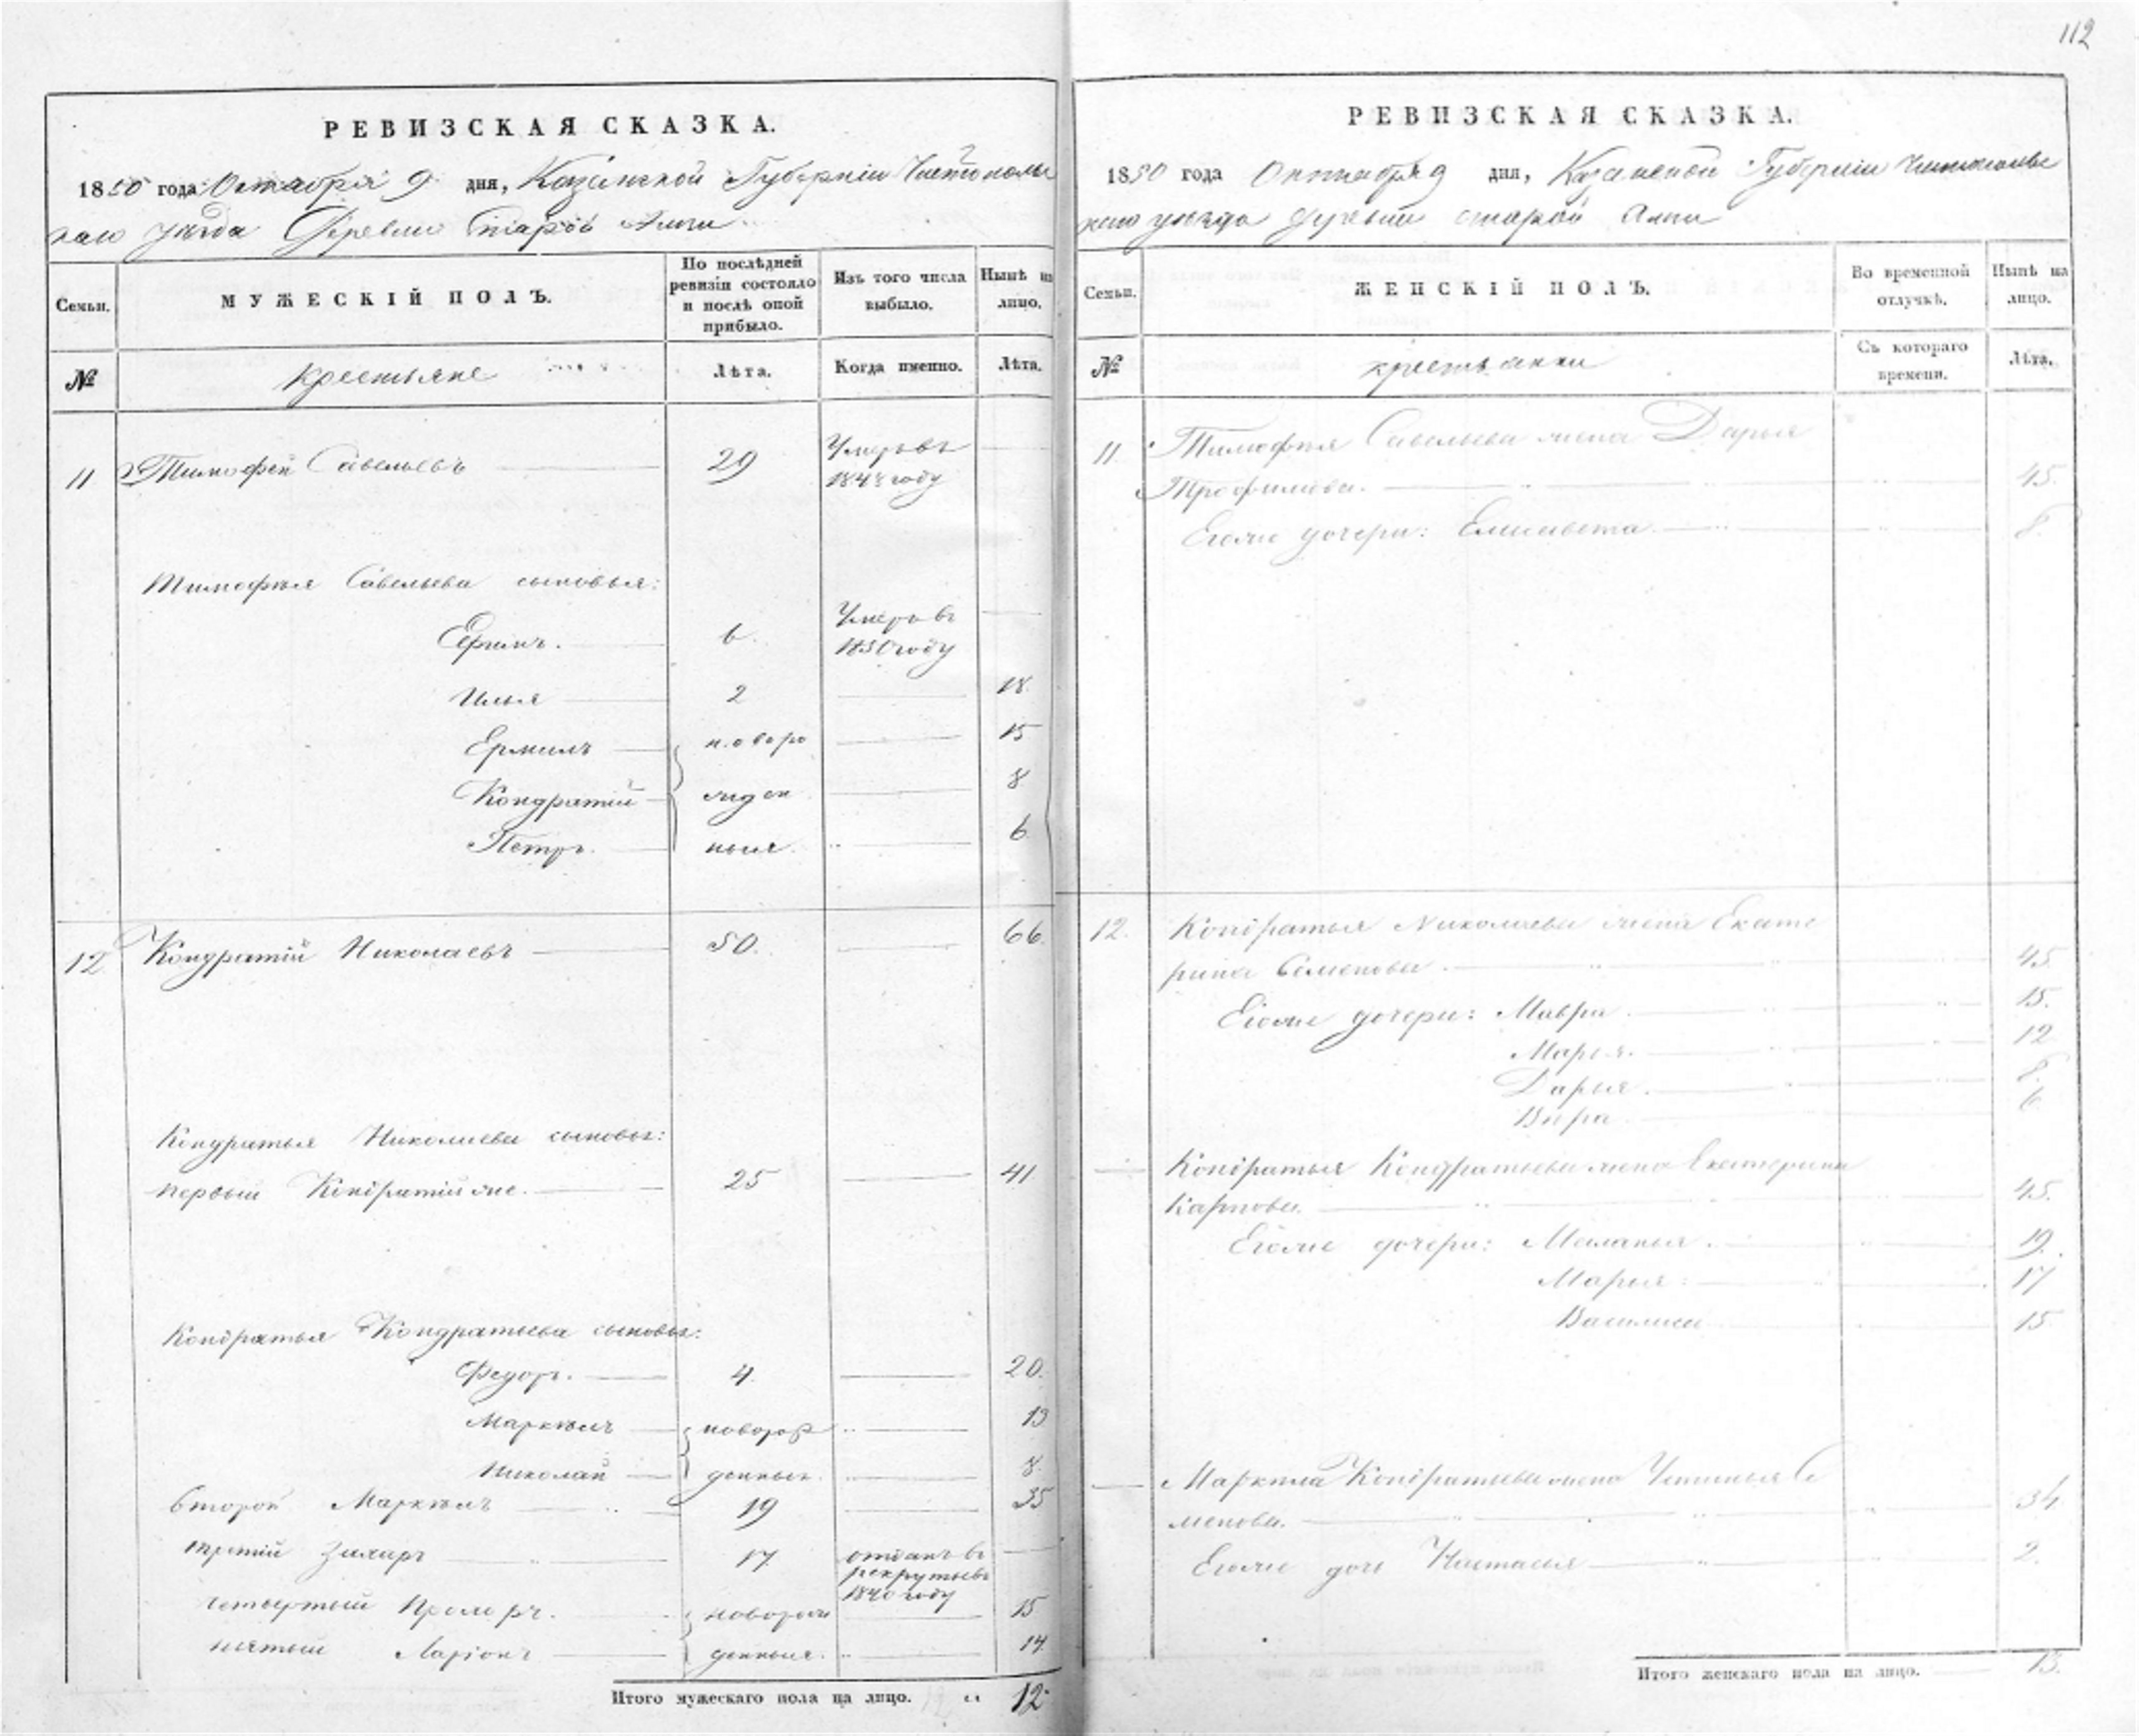 112
РЕВИЗСКАЯ СКАЗКА.
1850 года Октября 9 дня, Казанской Губернiи Чистополь
скаго уезда Деревни Старой
Семьи.
МУЖЕСКIЙ ПОЛЪ.
По послѣдней
ревизiи состояло
и послѣ оной
прибыло.
Изъ того числа
выбыло.
Нынѣ на
лицо.
№
крестьяне
Лѣта.
Когда именно.
Лѣта.
11 Тимофей Савельевъ 29 Умеръ въ
году
Тимофея Савельева сыновья:
6 Умеръ въ
1850 году
Илья 2 18
Ермилъ новоро 15
Кондратiй жден 8
Петръ ныя 6
12 Кондратiй Николаевъ 50. 66
Кондратья Николаева сыновья:
первый Кондратiй же. 25 41
Кондратья Кондратьева сыновья:
Федоръ. 4 20.
Маркелъ новорож 13
Николай денныя 8.
второй Маркелъ 19 35
третiй Захаръ 17 отданъ въ
рекруты въ
1840 году
четвертый новорож 15
пятый Ларiонъ денныя. 14
Итого мужескаго пола на лицо. 12
РЕВИЗСКАЯ СКАЗКА.
1850 года Октября 9 дня, Казанской Губернiи Чистополь
скаго уѣзда деревни старой
Семьи.
ЖЕНСКIЙ ПОЛЪ.
Во временной
отлучкѣ.
Нынѣ на
лицо.
№
крестьянки
Съ котораго
времени.
Лѣта.
11. Тимофея Савельева жена Дарья
Трофимова. 45.
Егоже дочери: Елисавета 8
12. Кондратья Николаева жена Екате
рина Семенова. 45
Егоже дочери: Мавра 15.
Марья. 12
Дарья. 8.
Вѣра 6
Кондратья Кондратьева жена Екатерина
Карпова. 45.
Егоже дочери: Меланья. 19.
Марья 17
Василиса 15
Маркела Кондратьева жена Устинья Се
менова. 34
Егоже дочь Настасья 2.
Итого женскаго пола на лицо. 13.